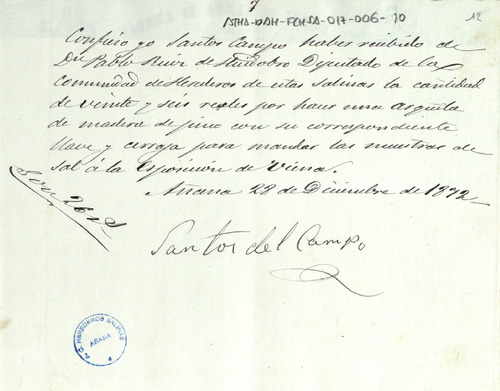 7
ATHA-DAH-FCHSA-017-006-10
12
Confieso yo Santos Campo haber recibido de
Dn. Pablo Ruiz de Huidobro Diputado de la
Comunidad de Herederos de estas Salinas la cantidad
de veinte y seis reales por hacer una arquita
de madera de pino con su correspondiente
llave y cerraja para mandar las muestras de
sal á la esposicion de Viena.
Añana 28 de Diciembre de 1872
Son 26 rs
Santos del Campo
HEREDEROS SALINAS
AÑANA